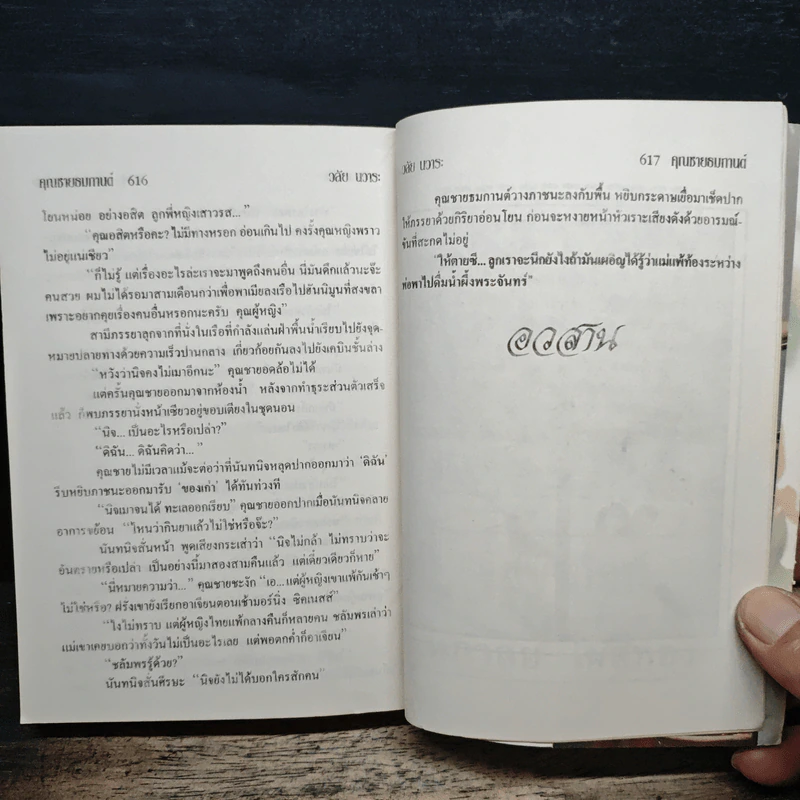 คุณชายธมกานต์ 616 วลัย นวาระ
โยนหน่อย อย่างอสิต ลูกพี่หญิงเสาวรส..."
"คุณอสิตหรือคะ? ไม่มีทางหรอก อ่อนเกินไป คงรั้งคุณหญิงพราว
ไม่อยู่แน่เชียว"
"ก็ไม่รู้ แต่เรื่องอะไรล่ะเราจะมาพูดถึงคนอื่น นี่มันดึกแล้วนะจ๊ะ
คนสวย ผมไม่ได้รอมาสามเดือนกว่าเพื่อพาเมียลงเรือไปฮันนิมูนที่สงขลา
เพราะอยากคุยเรื่องคนอื่นหรอกนะครับ คุณผู้หญิง"
สามีภรรยาลุกจากที่นั่งในเรือที่กำลังแล่นฝ่าพื้นน้ำเรียบไปยังจุด-
หมายปลายทางด้วยความเร็วปานกลาง เกี่ยวก้อยกันลงไปยังเคบินชั้นล่าง
"หวังว่านิจคงไม่เมาอีกนะ" คุณชายอดล้อไม่ได้
แต่ครั้นคุณชายออกมาจากห้องน้ำ หลังจากทำธุระส่วนตัวเสร็จ
แล้ว ก็พบภรรยานั่งหน้าเซียวอยู่ขอบเตียงในชุดนอน
"นิจ...เป็นอะไรหรือเปล่า?"
"ดิฉัน... ดิฉันคิดว่า..."
คุณชายไม่มีเวลาแม้จะต่อว่าที่นันทนิจหลุดปากออกมาว่า 'ดิฉัน'
รีบหยิบภาชนะออกมารับ 'ของเก่า' ได้ทันท่วงที
"นิจเมาจนได้ ทะเลออกเรียบ" คุณชายออกปากเมื่อนันทนิจคลาย
อาการขย้อน "ไหนว่ากินยาแล้วไม่ใช่หรือจ๊ะ?"
นันทนิจสั่นหน้า พูดเสียงกระเส่าว่า "นิจไม่กล้า ไม่ทราบว่าจะ
อันตรายหรือเปล่า เป็นอย่างนี้มาสองสามคืนแล้ว แต่เดี๋ยวเดียวก็หาย"
"นี่หมายความว่า..." คุณชายชะงัก "เอ...แต่ผู้หญิงเขาแพ้กันเช้าๆ
ไม่ใช่หรือ? ฝรั่งเขายังเรียกอาเจียนตอนเช้ามอร์นิ่ง ซิคเนสส์"
"ไงไม่ทราบ แต่ผู้หญิงไทยแพ้กลางคืนก็หลายคน ชลัมพรเล่าว่า
แม่เขาเคยบอกว่าทั้งวันไม่เป็นอะไรเลย แต่พอตกค่ำก็อาเจียน"
"ชลัมพรรู้ด้วย?"
นันทนิจสั่นศีรษะ "นิจยังไม่ได้บอกใครสักคน"
วลัย นวาระ 617 คุณชายธมกานต์
คุณชายธมกานต์วางภาชนะลงกับพื้น หยิบกระดาษเยื่อมาเช็ดปาก
ให้ภรรยาด้วยกิริยาอ่อนโยน ก่อนจะหงายหน้าหัวเราะเสียงดังด้วยอารมณ์-
ขันที่สะกดไม่อยู่
"ให้ตายซี...ลูกเราจะนึกยังไงถ้ามันเผอิญได้รู้ว่าแม่แพ้ท้องระหว่าง
พ่อพาไปดื่มน้ำผึ้งพระจันทร์"
อวสาน